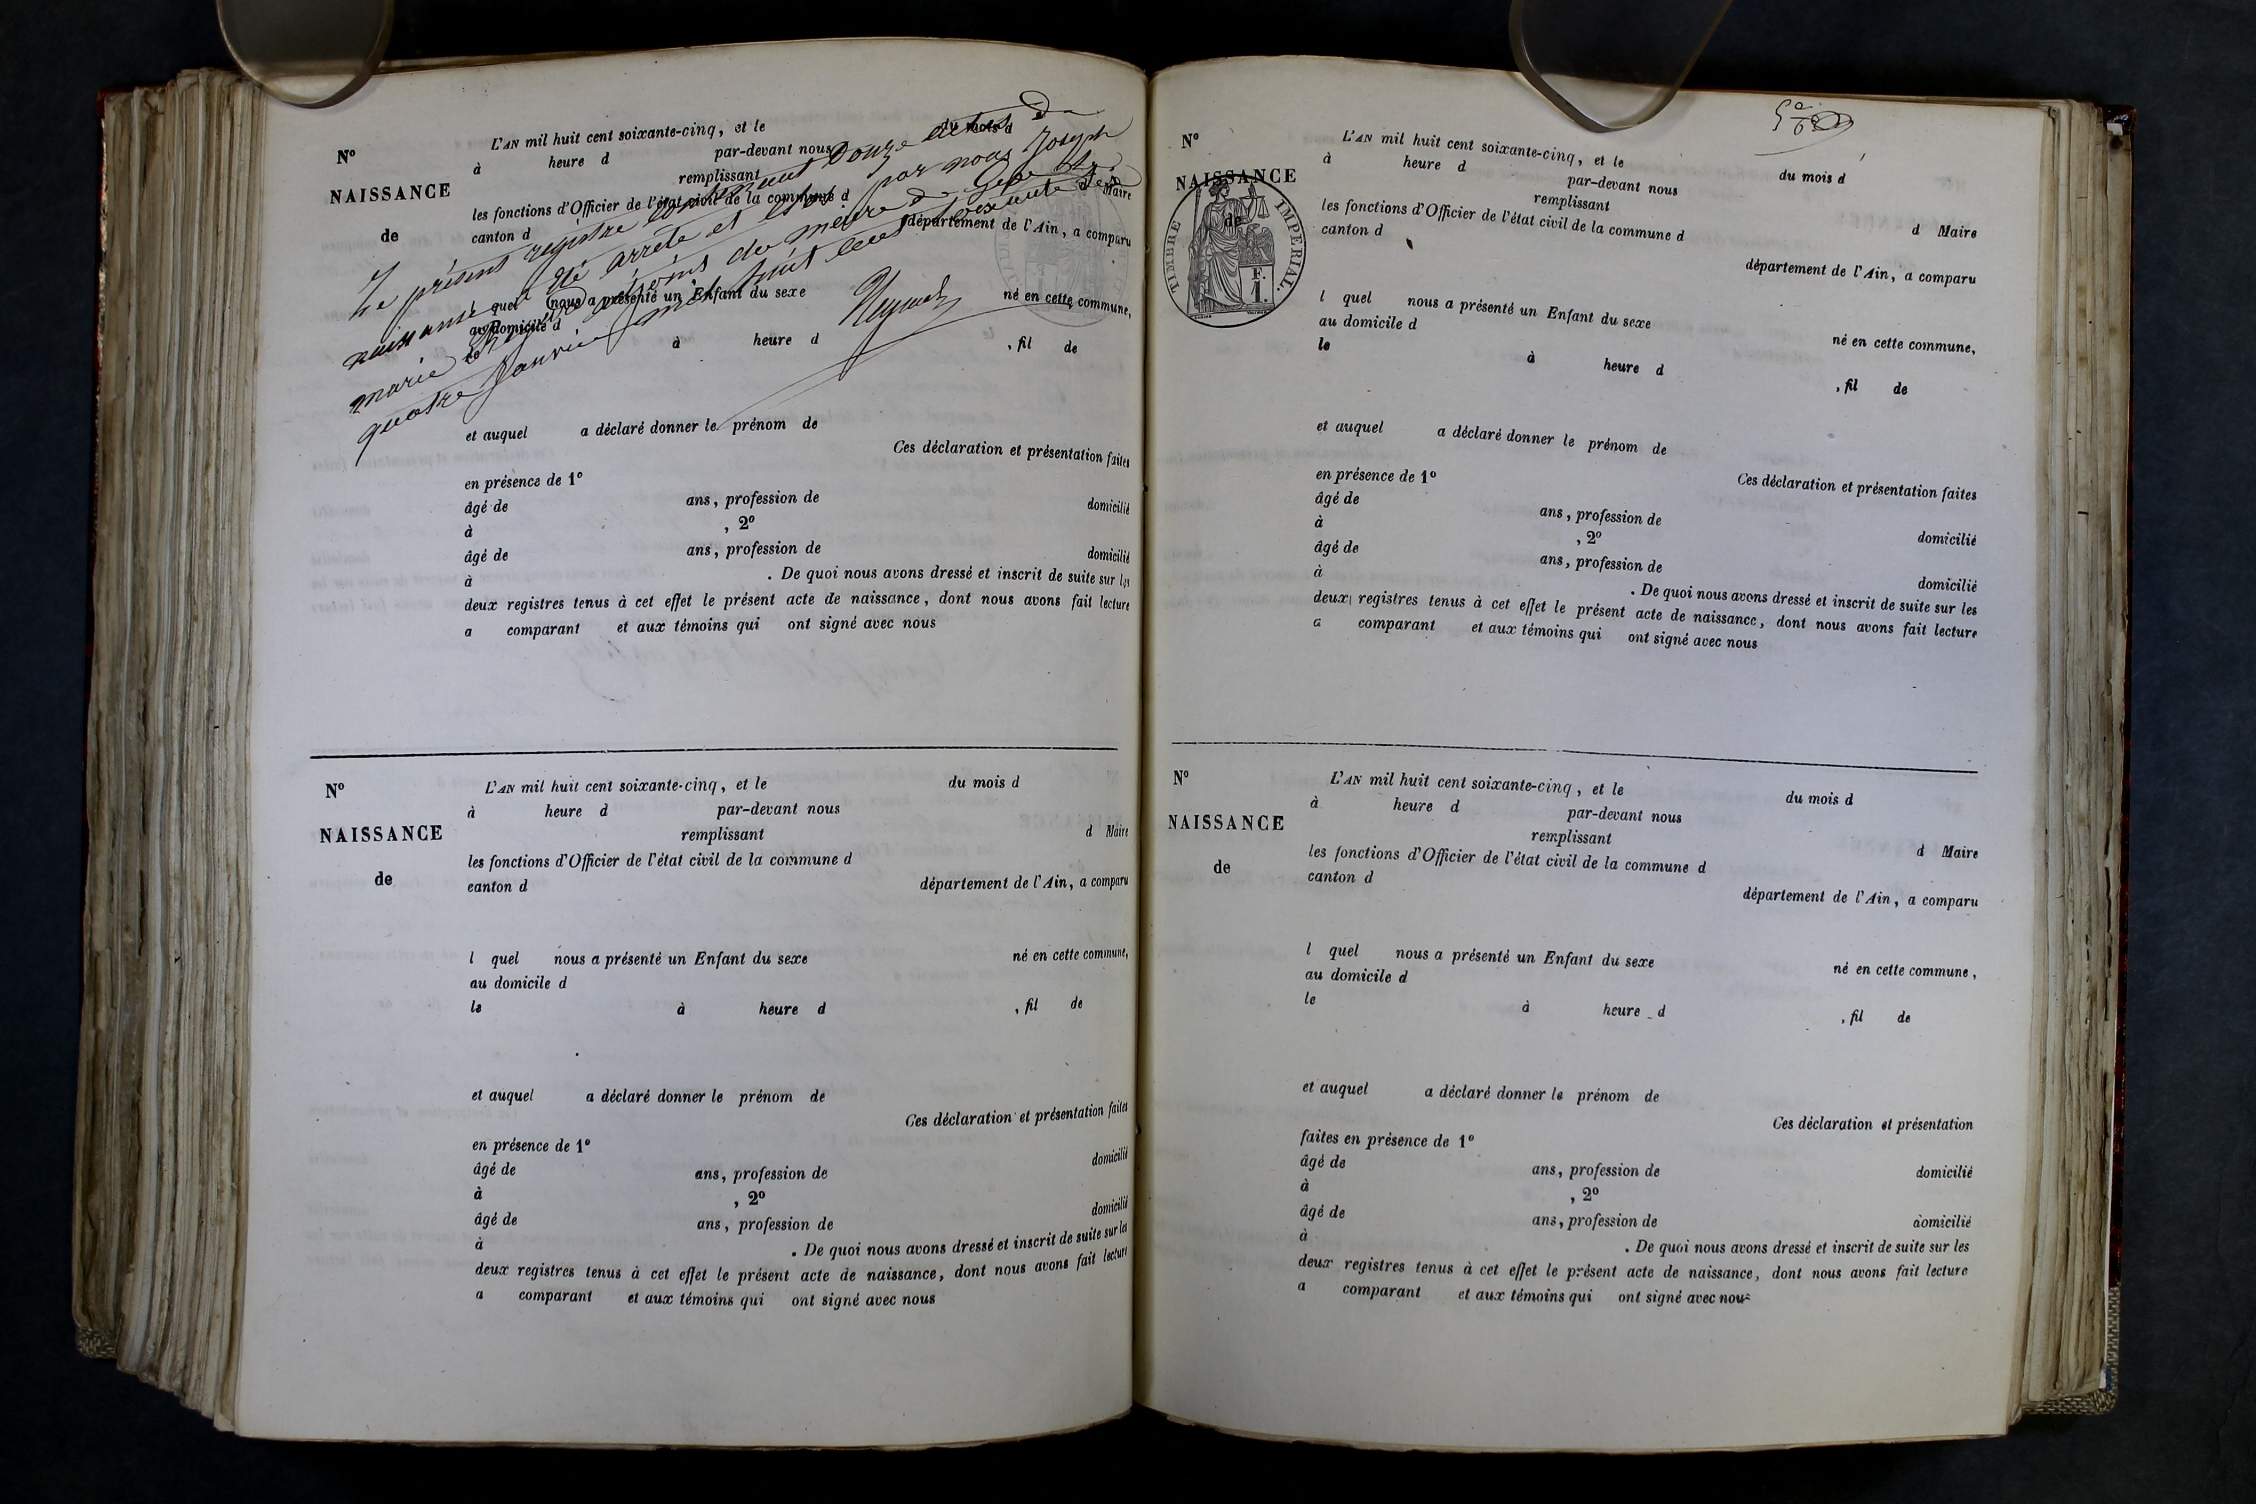 N°
NAISSANCE
de
L'AN mil huit cent soixante-cinq, et le du mois d
à heure d par-devant nous
remplissant d Maire
les fonctions d'Officier de l'état civil de la commune d
canton d département de l'Ain, a comparu
l quel nous a présenté un Enfant du sexe né en cette commune,
au domicile d
le à heure d , fil de
et auquel a déclaré donner le prénom de
Ces déclaration et présentation faites
en présence de 1°
âgé de ans, profession de domicilié
à , 2°
âgé de ans, profession de domicilié
à . De quoi nous avons dressé et inscrit de suite sur les
deux registres tenus à cet effet le présent acte de naissance, dont nous avons fait lecture
a comparant et aux témoins qui ont signé avec nous
Le présent registre contenant Douze actes De
naissance a été arrêté et clos par nous Joseph
marie
quatre Janvier mil huit cent soixante six
N°
NAISSANCE
de
L'AN mil huit cent soixante-cinq, et le du mois d
à heure d par-devant nous
remplissant d Maire
les fonctions d'Officier de l'état civil de la commune d
canton d département de l'Ain, a comparu
l quel nous a présenté un Enfant du sexe né en cette commune,
au domicile d
le à heure d , fil de
et auquel a déclaré donner le prénom de
Ces déclaration et présentation faites
en présence de 1°
âgé de ans, profession de domicilié
à , 2°
âgé de ans, profession de domicilié
à . De quoi nous avons dressé et inscrit de suite sur les
deux registres tenus à cet effet le présent acte de naissance, dont nous avons fait lecture
a comparant et aux témoins qui ont signé avec nous
N°
NAISSANCE
de
TIMBRE IMPERIAL.
F.
1.
L'AN mil huit cent soixante-cinq, et le du mois d
à heure d par-devant nous
remplissant d Maire
les fonctions d'Officier de l'état civil de la commune d
canton d département de l'Ain, a comparu
l quel nous a présenté un Enfant du sexe né en cette commune,
au domicile d
le à heure d , fil de
et auquel a déclaré donner le prénom de
Ces déclaration et présentation faites
en présence de 1°
âgé de ans, profession de domicilié
à , 2°
âgé de ans, profession de domicilié
à . De quoi nous avons dressé et inscrit de suite sur les
deux registres tenus à cet effet le présent acte de naissance, dont nous avons fait lecture
a comparant et aux témoins qui ont signé avec nous
N°
NAISSANCE
de
L'AN mil huit cent soixante-cinq, et le du mois d
à heure d par-devant nous
remplissant d Maire
les fonctions d'Officier de l'état civil de la commune d
canton d département de l'Ain, a comparu
l quel nous a présenté un Enfant du sexe né en cette commune,
au domicile d
le à heure d , fil de
et auquel a déclaré donner le prénom de
Ces déclaration et présentation
faites en présence de 1°
âgé de ans, profession de domicilié
à , 2°
âgé de ans, profession de domicilié
à . De quoi nous avons dressé et inscrit de suite sur les
deux registres tenus à cet effet le présent acte de naissance, dont nous avons fait lecture
a comparant et aux témoins qui ont signé avec nous